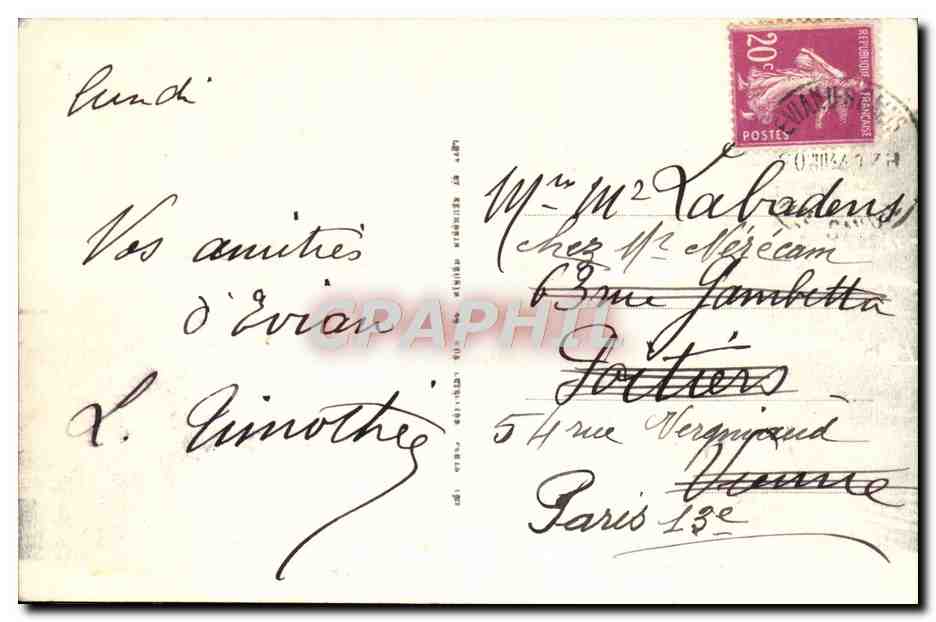 lundi
Vos amitiés
d'Evian
L. Timothée
20c
REPUBLIQUE FRANÇAISE
POSTES
EVIAN LES
Labadens
chez Mr Nérécam
63 rue Gambetta
Poitiers
54 rue Vergniaud
Vienne
Paris 13e
CPAPHIL